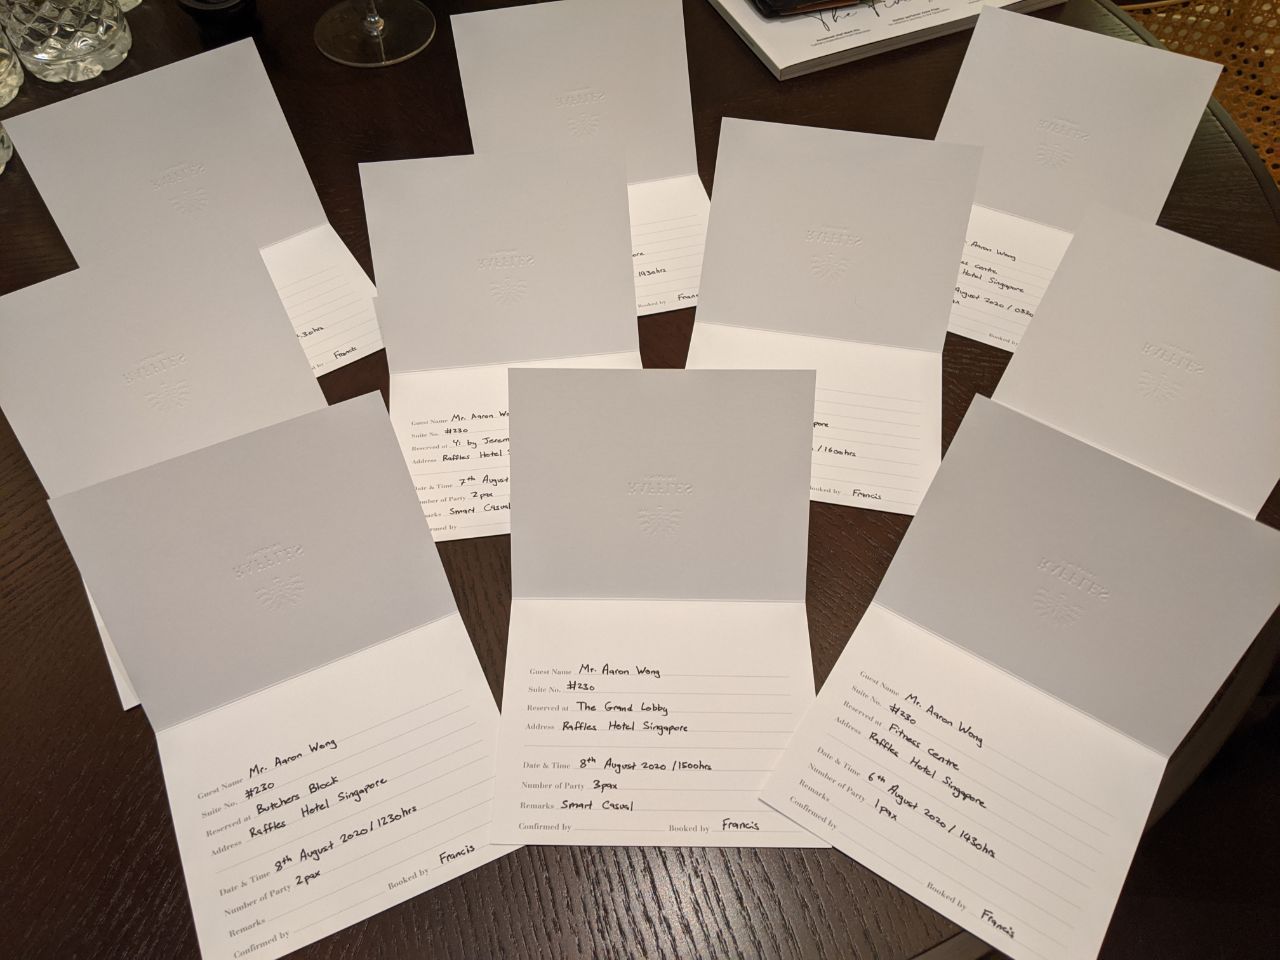 RAFFLES
RAFFLES
RAFFLES
ore
1930hrs
Booked by Franc
. Aaron Wong
ess Centre
Hotel Singapore
August 2020 / 0830
Booked by
.30hrs
by Francis
RAFFLES
RAFFLES
RAFFLES
RAFFLES
Guest Name Mr. Aaron Wo
Suite No. #230
Reserved at Yi by Jerem
Address Raffles Hotel S
Date & Time 7th August
Number of Party 2pax
Remarks Smart Casual
Confirmed by
pore
/ 1600hrs
Booked by Francis
RAFFLES
Guest Name Mr. Aaron Wong
Suite No. #230
Reserved at Butchers Block
Address Raffles Hotel Singapore
Date & Time 8th August 2020 / 1230hrs
Number of Party 2pax
Remarks
Confirmed by
Booked by Francis
RAFFLES
Guest Name Mr. Aaron Wong
Suite No. #230
Reserved at The Grand Lobby
Address Raffles Hotel Singapore
Date & Time 8th August 2020 / 1500hrs
Number of Party 3pax
Remarks Smart Casual
Confirmed by Booked by Francis
RAFFLES
Guest Name Mr. Aaron Wong
Suite No. #230
Reserved at Fitness Centre
Address Raffles Hotel Singapore
Date & Time 6th August 2020 / 1430hrs
Number of Party 1pax
Remarks
Confirmed by
Booked by Francis